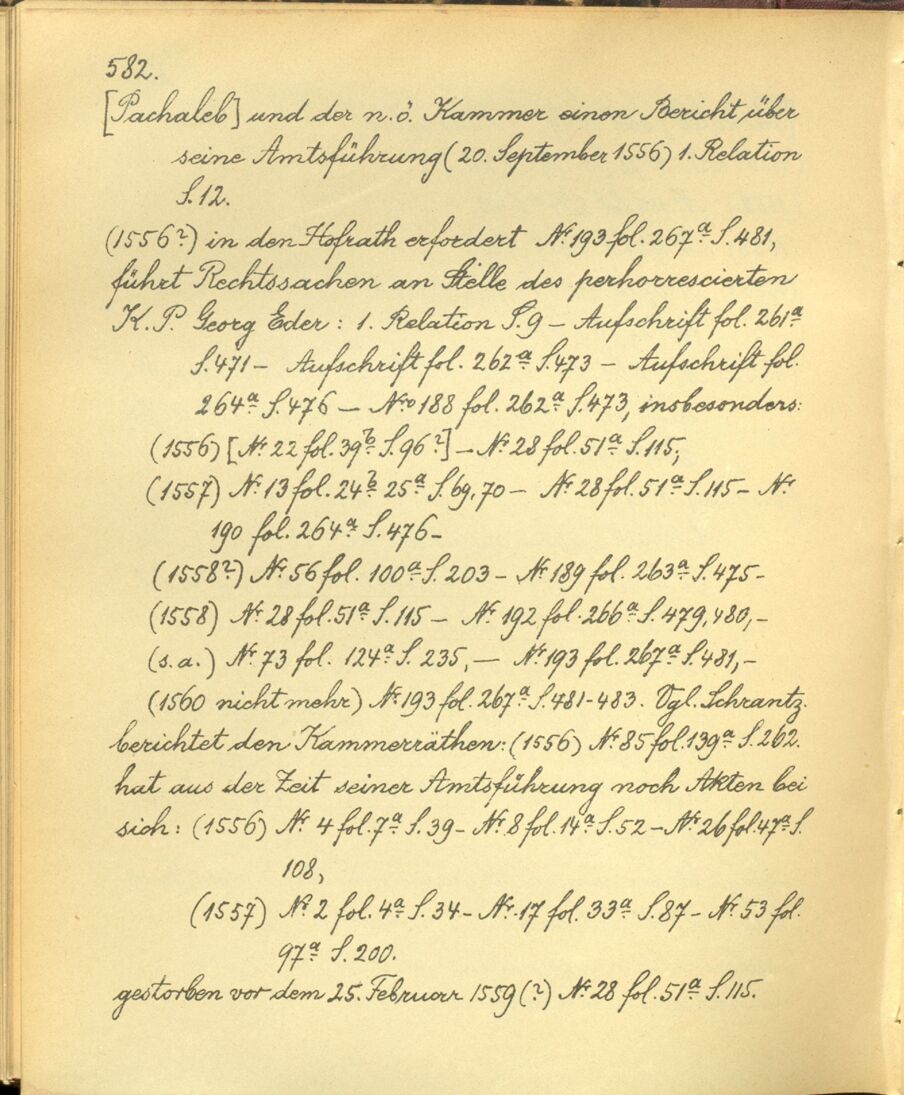 582.
[Pachaleb] und der n.ö. Kammer einen Bericht über
seine Amtsführung (20. September 1556) 1. Relation
S. 12.
(1556?) in den Hofrath erfordert Nr. 193 fol. 267a S. 481,
führt Rechtssachen an Stelle des perhorrescierten
K. P. Georg Eder : 1. Relation S. 9 – Aufschrift fol. 261a
S. 471 – Aufschrift fol. 262a S. 473 – Aufschrift fol.
264a S. 476 – Nro 188 fol. 262a S. 473, insbesonders:
(1556) [Nr. 22 fol. 39b S. 96?] – Nr. 28 fol. 51a S. 115,
(1557) Nr. 13 fol. 24b 25a S. 69, 70 – Nr. 28 fol. 51a S. 115 – Nr.
190 fol. 264a S. 476 –
(1558?) Nr. 56 fol. 100a S. 203 – Nr. 189 fol. 263a S. 475 –
(1558) Nr. 28 fol. 51a S. 115 – Nr. 192 fol. 266a S. 479, 480, –
(s. a.) Nr. 73 fol. 124a S. 235, – Nr. 193 fol. 267a S. 481, –
(1560 nicht mehr) Nr. 193 fol. 267a S. 481-483. Vgl. Schrantz.
berichtet den Kammerräthen: (1556) Nr. 85 fol. 139a S. 262.
hat aus der Zeit seiner Amtsführung noch Akten bei
sich : (1556) Nr. 4 fol. 7a S. 39 – Nr. 8 fol. 14a S. 52 – Nr. 26 fol. 47a S.
108,
(1557) Nr. 2 fol. 4a S. 34 – Nr. 17 fol. 33a S. 87 – Nr. 53 fol.
97a S. 200.
gestorben vor dem 25. Februar 1559 (?) Nr. 28 fol. 51a S. 115.